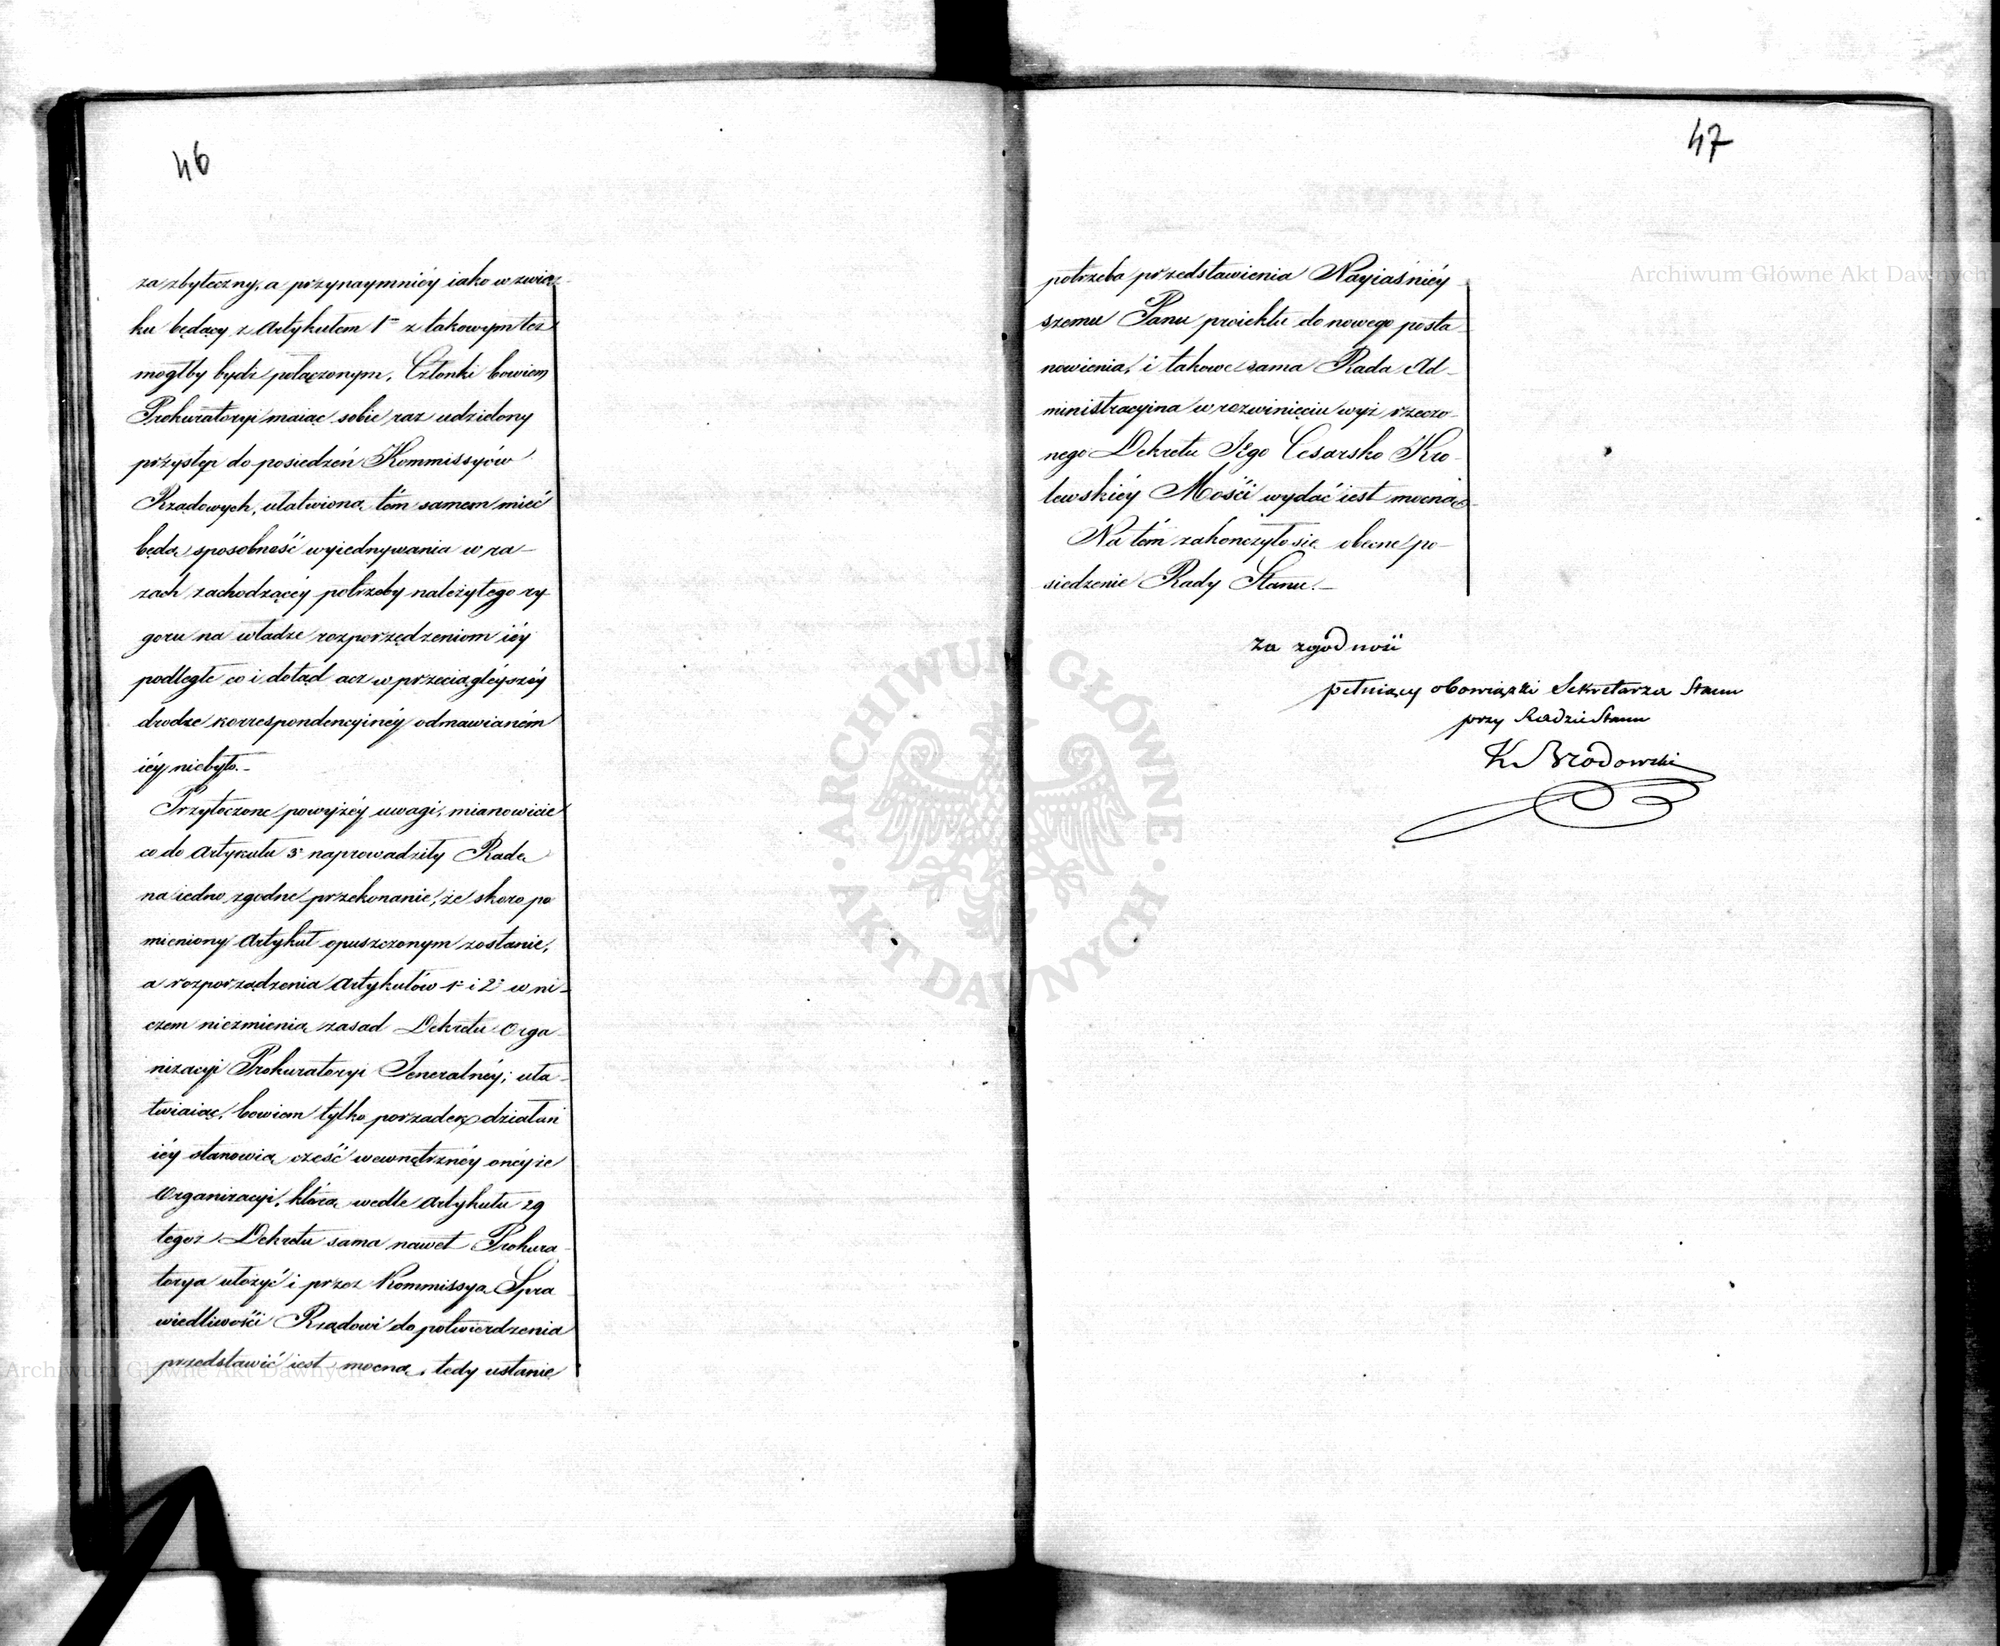 46
za zbyteczny, a przynaymniéy iako w związ-
ku będący z Artykułem 1m z takowym też
mogłby bydź połączonym. Członki bowiem
Prokuratoryi maiąc sobie raz udzielony
przystęp do posiedzeń Kommissyów
Rządowych, ułatwioną tém samem mieć
będą sposobność wyiednywania w ra-
zach zachodzącéy potrzeby należytego ry-
goru na władze rozporządzeniom iéy
podległe co i dotąd acz w przeciągléyszéy
drodze korrespondencyinéy odmawianém
iéy niebyło.-
Przytoczone powyżéy uwagi, mianowicie
co do Artykułu 3o naprowadziły Radę
na iedno zgodne przekonanie, że skoro po
mieniony Artykuł opuszczonym zostanie,
a rozporządzenia Artykułów 1o i 2o w ni-
czem niezmienią zasad Dekretu Orga-
nizacyi Prokuratoryi Jeneralnéy; uła-
twiaiąc bowiem tylko porządek działań
iéy stanowią część wewnętrznéy onéyże
Organizacyi, którą wedle Artykułu 29
tegoż Dekretu sama nawet Prokura-
torya ułożyć i przez Kommissyą Spra
wiedliwości Rządowi do potwierdzenia
przedstawić iest mocna, tedy ustanie
47
potrzeba przedstawienia Nayiaśniéy-
szemu Panu proiektu do nowego posta-
nowienia, i takowe sama Rada Ad-
ministracyina w rozwinięciu wyż rzeczo-
nego Dekretu Jego Cesarsko Kro-
lewskiéy Mości wydać iest mocną.
Na tém zakończyło się obecne po-
siedzenie Rady Stanu.-
Za zgodność
pełniący obowiązki Sekretarza Stanu
przy Radzie Stanu
K Brodowski
ARCHIWUM GŁÓWNE · AKT DAWNYCH ·
Archiwum Główne Akt Dawnych
Archiwum Główne Akt Dawnych